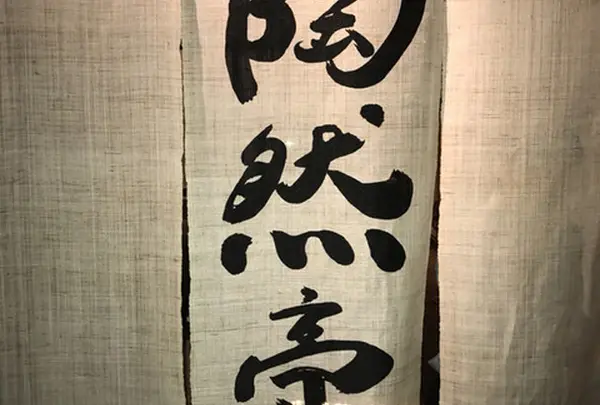 陶然亭